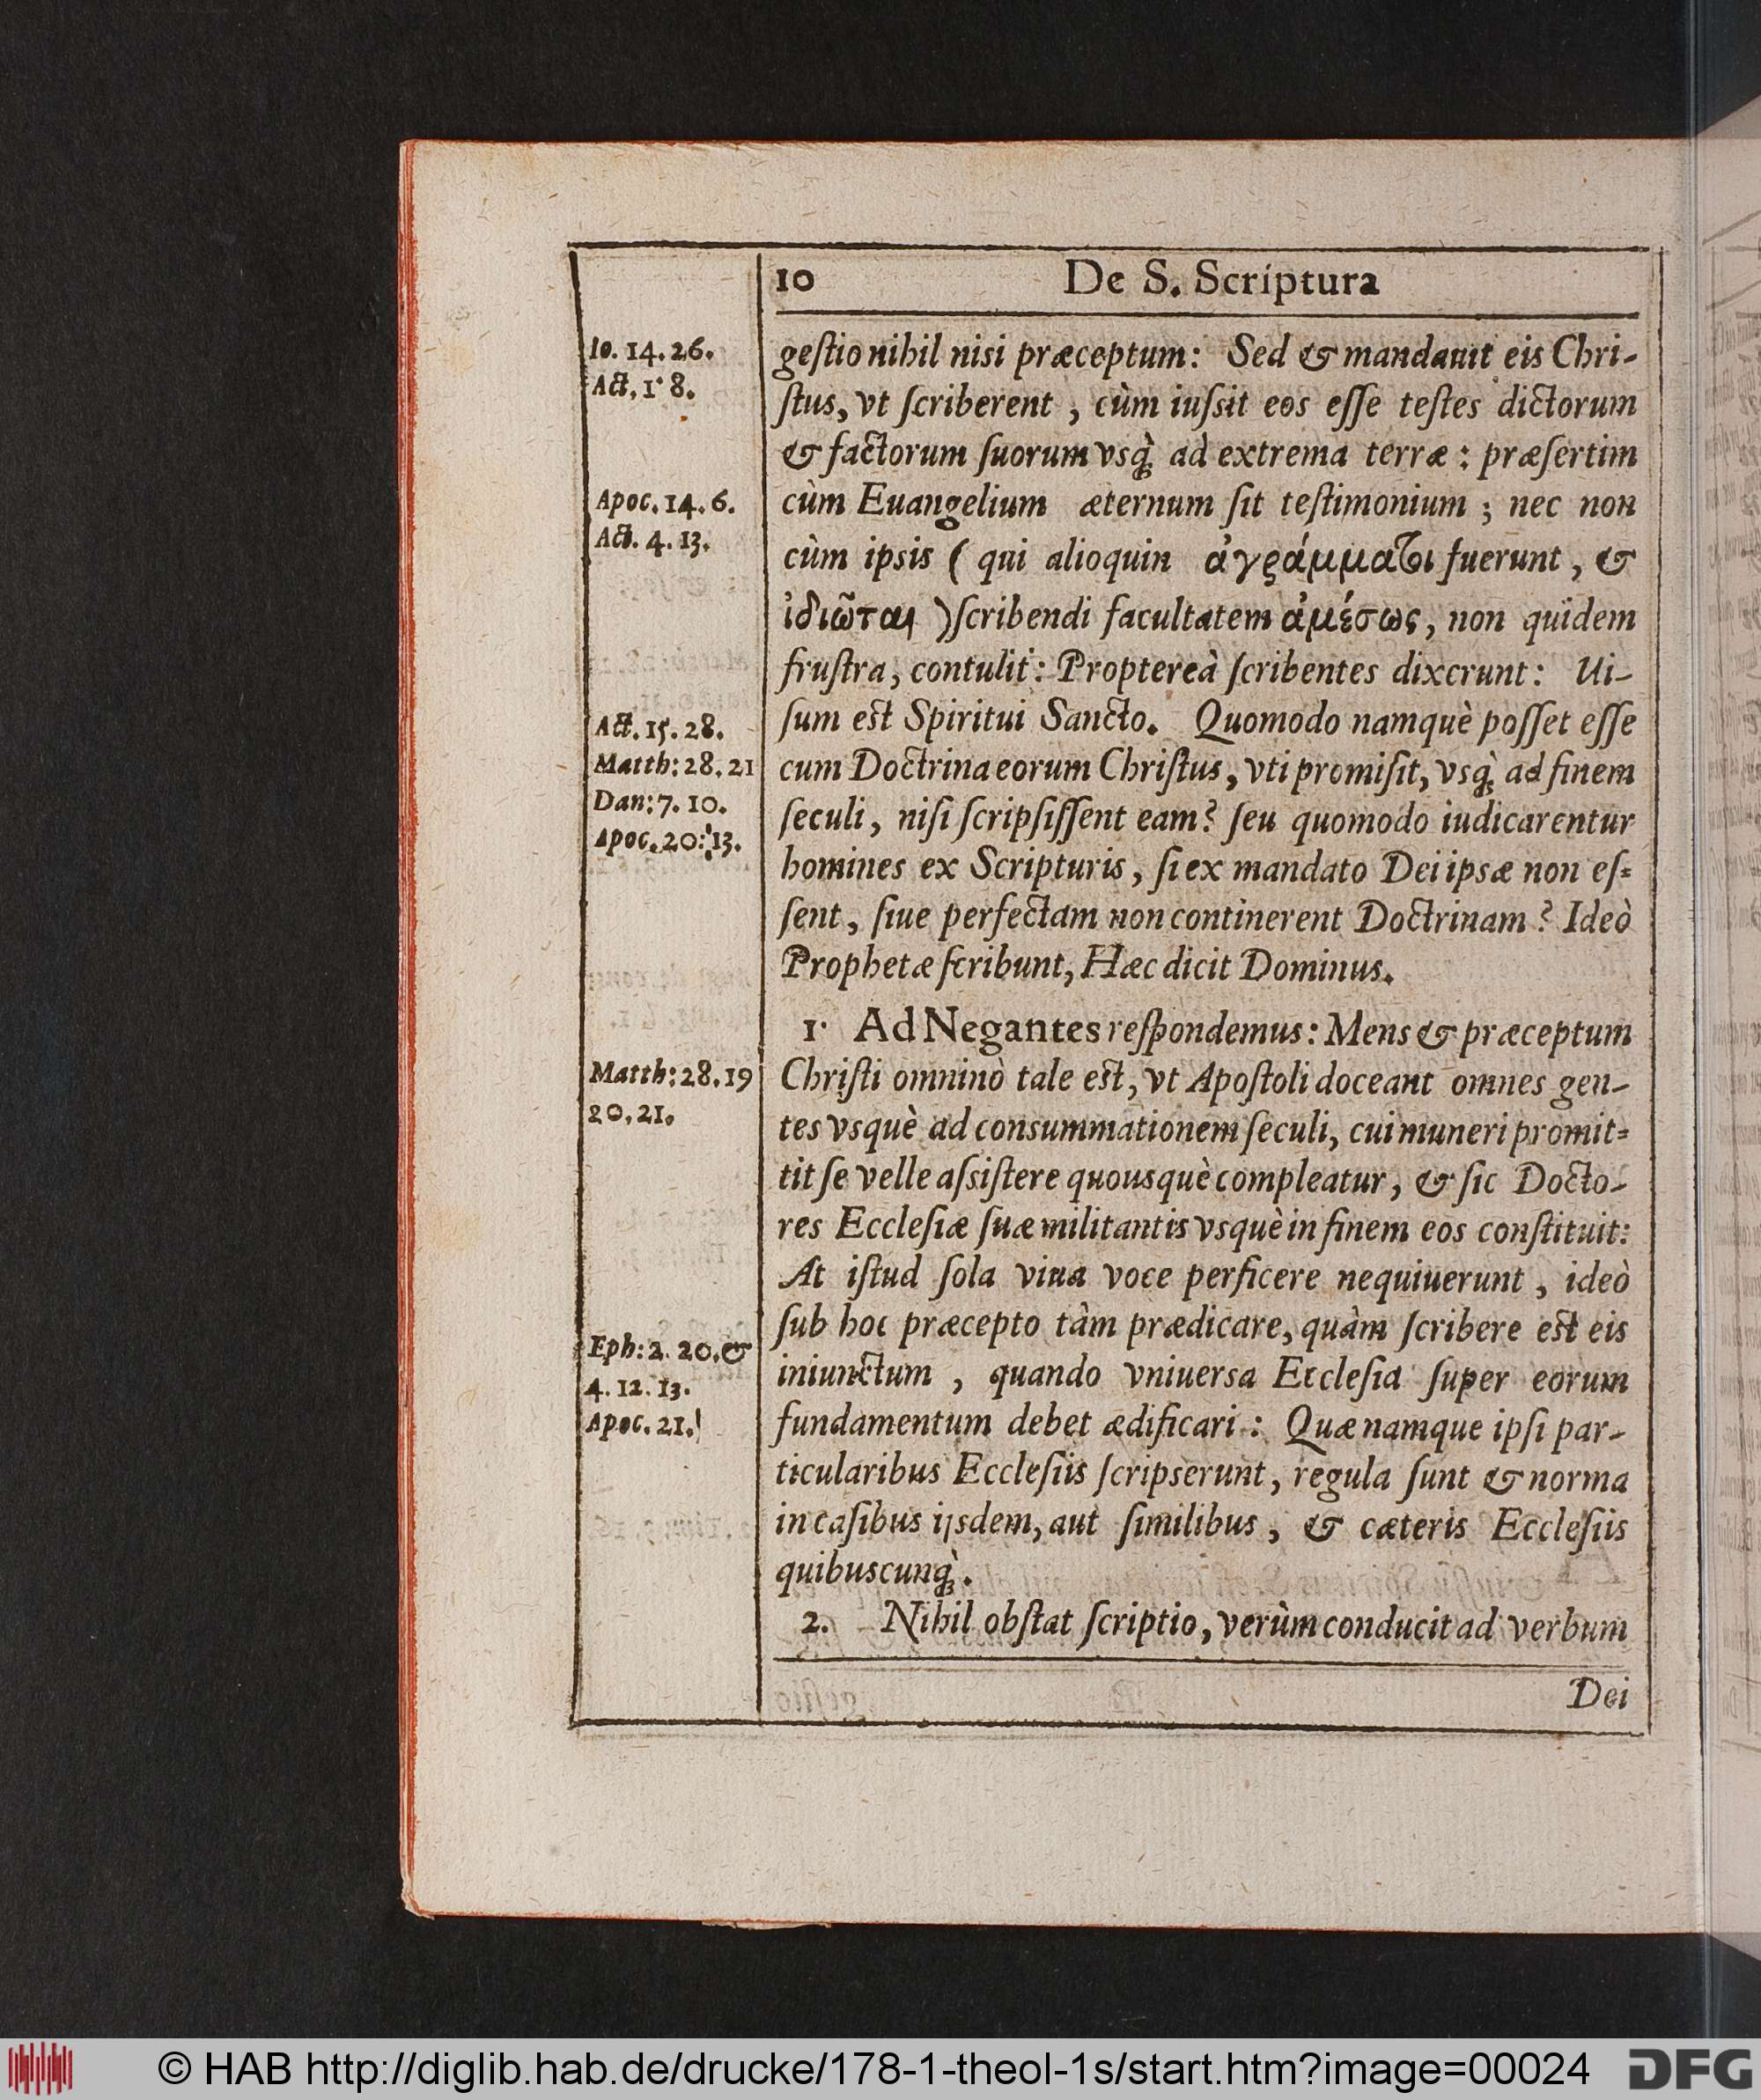 10 De S. Scriptura
Io. 14. 26.
Act. 1. 8.
Apoc. 14. 6.
Act. 4. 13.
Act. 15. 28.
Matth: 28. 21
Dan: 7. 10.
Apoc. 20: 13.
Matth: 28. 19
20. 21.
Eph: 2. 20. &
4. 12. 13.
Apoc. 21.
geſtio nihil nisi præceptum: Sed & mandauit eis Chri-
ſtus, vt ſcriberent, cùm iuſsit eos eſſe teſtes dictorum
& factorum ſuorum vsq́; ad extrema terræ: præſertim
cùm Euangelium æternum ſit teſtimonium; nec non
cùm ipsis (qui alioquin ἀγράμματοι fuerunt, &
ἰδιῶται) ſcribendi facultatem ἀμέσως, non quidem
fruſtra, contulit: Proptereà ſcribentes dixerunt: Ui-
ſum est Spiritui Sancto. Quomodo namquè poſſet eſſe
cum Doctrina eorum Chriſtus, vti promiſit, vsq́; ad finem
ſeculi, niſi ſcripſiſſent eam? ſeu quomodo iudicarentur
homines ex Scripturis, ſi ex mandato Dei ipsæ non eſ-
ſent, ſiue perfectam non continerent Doctrinam? Ideò
Prophetæ ſcribunt, Hæc dicit Dominus.
1. Ad Negantes reſpondemus: Mens & præceptum
Chriſti omninò tale est, vt Apoſtoli doceant omnes gen-
tes vsquè ad consummationem ſeculi, cui muneri promit-
tit ſe velle aſsiſtere quousquè compleatur, & ſic Docto-
res Eccleſiæ ſuæ militantis vsquè in finem eos conſtituit:
At iſtud ſola viua voce perficere nequiuerunt, ideò
ſub hoc præcepto tàm prædicare, quàm ſcribere est eis
iniunctum, quando vniuersa Eccleſia ſuper eorum
fundamentum debet ædificari: Quæ namque ipſi par-
ticularibus Eccleſiis ſcripserunt, regula ſunt & norma
in caſibus ijsdem, aut ſimilibus, & cæteris Eccleſiis
quibuscunq́;.
2. Nihil obſtat ſcriptio, verùm conducit ad verbum
Dei
© HAB http://diglib.hab.de/drucke/178-1-theol-1s/start.htm?image=00024
DFG